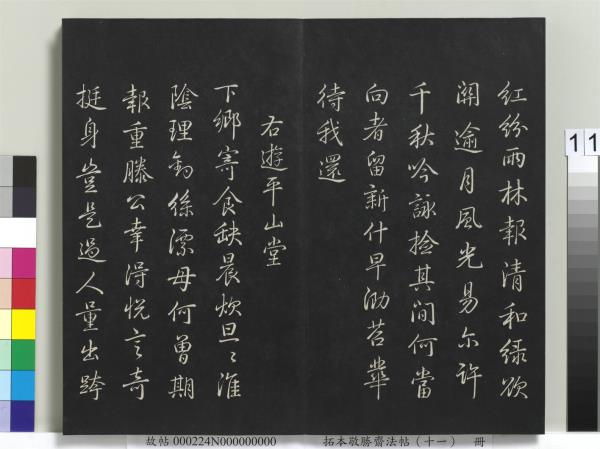 紅紛雨林報清和緑欲
關逾月風光易尓許
千秋吟詠撿其間何當
向者留新什早泐苔華
待我還
右遊平山堂
下鄉寄食缺晨炊旦〻淮
陰理釣絲漂母何曽期
報重滕公幸得悅言奇
挺身豈是過人量出跨
故帖 000224N000000000 拓本敬勝齋法帖（十一） 冊
11